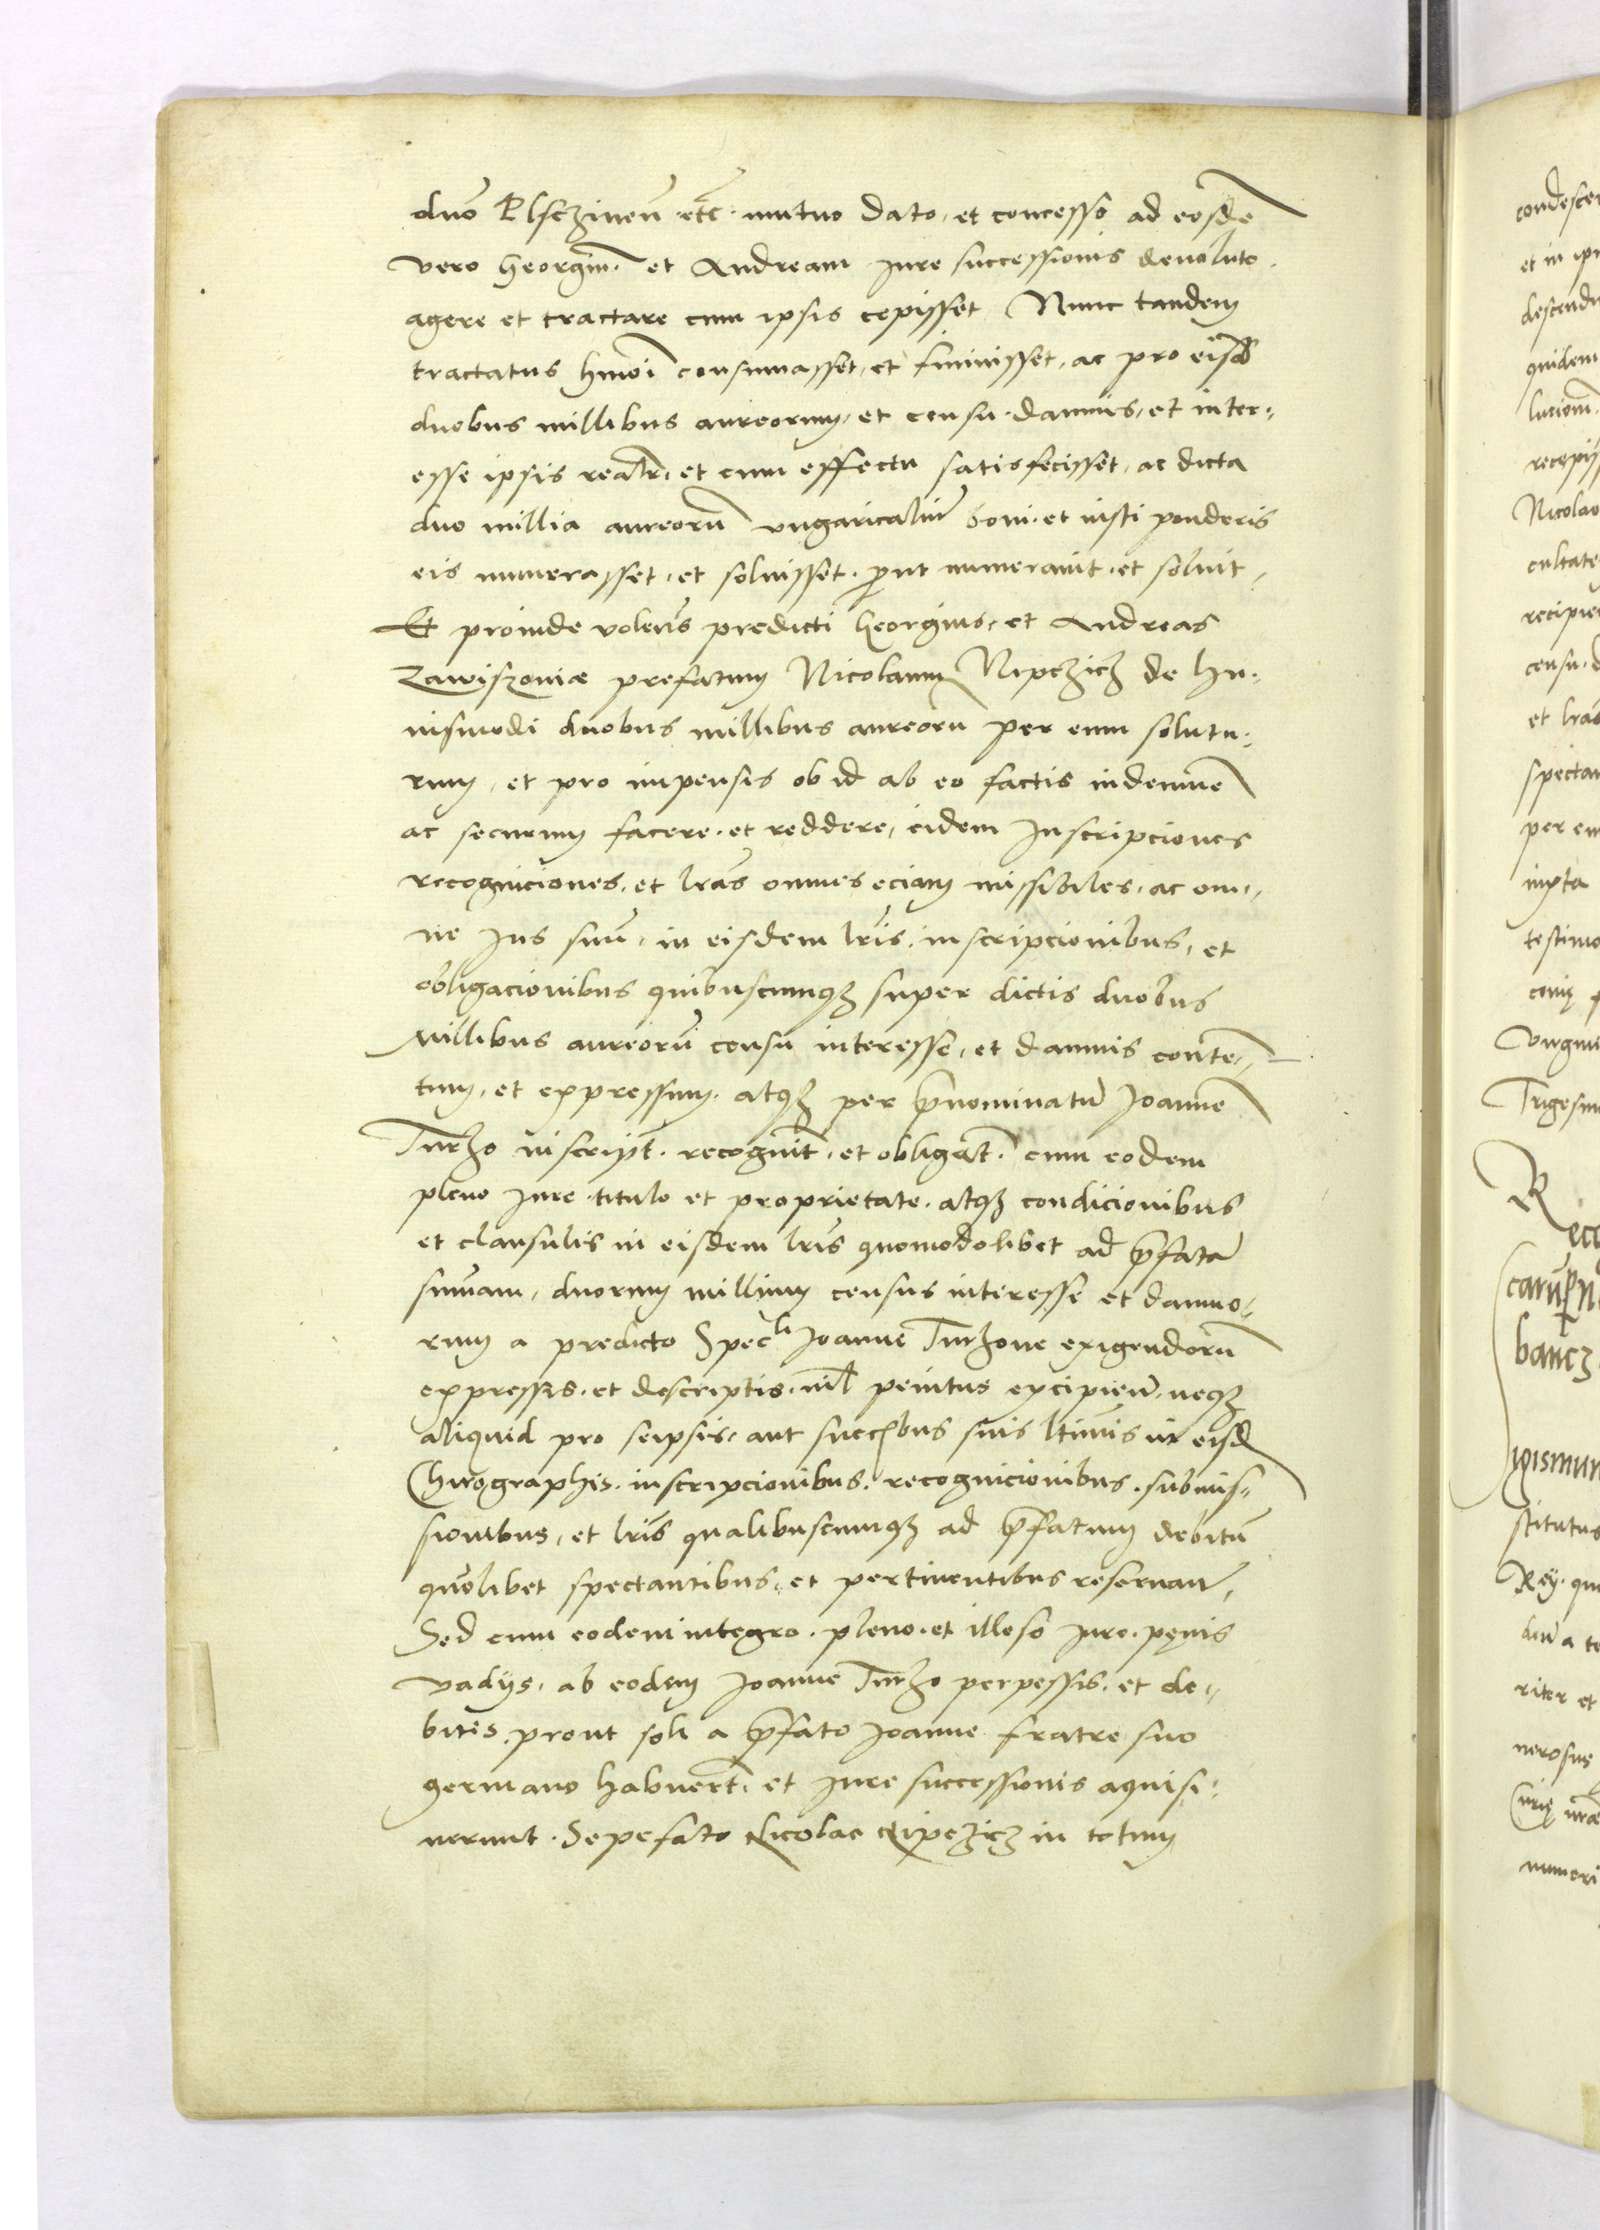 duo Plsczinen̄ etc̄ mutuo dato, et concesso ad eosdē
vero Georgiū. et Andream jure successionis deuoluto
agere et tractare cum ipsis cepisset Nunc tandem
tractatus hmōi consumasset, et finiuisset, ac pro eisd̄
duobus millibus aureorum, et censu. damnis, et inter-
esse ipsis realr̄. et cum effectu satisfecisset, ac dicta
duo millia aureorū vngaricaliū boni. et iusti ponderis
eis numerasset, et soluisset. put numerauit. et soluit,
Et proinde volens predicti Georgius, et Andreas
Zawiszoniæ prefatum Nicolaum Nipczicz de hu-
iusmodi duobus millibus aureorū per eum solutu-
rum, et pro impensis ob id ab eo factis indemnē
ac securum facere. et reddere, eidem Inscripciones
recogniciones. et lrās omnes eciam missibiles. ac om-
ne jus suū, in eisdem lrīs. inscripcionibus, et
obligacionibus quibuscumqz super dictis duobus
Millibus aureorū censu interesse, et damnis conten-
tum, et expressum. atqz per p̄nominatū Joannē
Turzo inscript̄. recognit̄. et obligat̄. cum eodem
pleno jure. titulo et proprietate. atqz condicionibus
et clausulis in eisdem lrīs quomodolibet ad p̄fatā
sum̄am, duorum millium census interesse et damno-
rum a predicto Specli Joanne Turzone exigendorū
expressis. et descriptis. nil̄ penitus excipien̄. neqz
aliquid pro seipsis. aut succ̄ibus suis ltīmis in eisd̄
Chirographis. inscripcionibus. recognicionibus. submis-
sionibus, et lrīs qualibuscumqz ad p̄fatum debitū
quolibet spectantibus, et pertinentibus reseruan̄,
Sed cum eodem integro. pleno. et illeso jure. pęnis
vadijs. ab eodem Joanne Turzo perpessis. et de-
bitis. prout soli a p̄fato Joanne fratre suo
germano habuert̄. et jure successionis aquisi-
uerunt. Sepefato Nicolao Nipczicz in totum